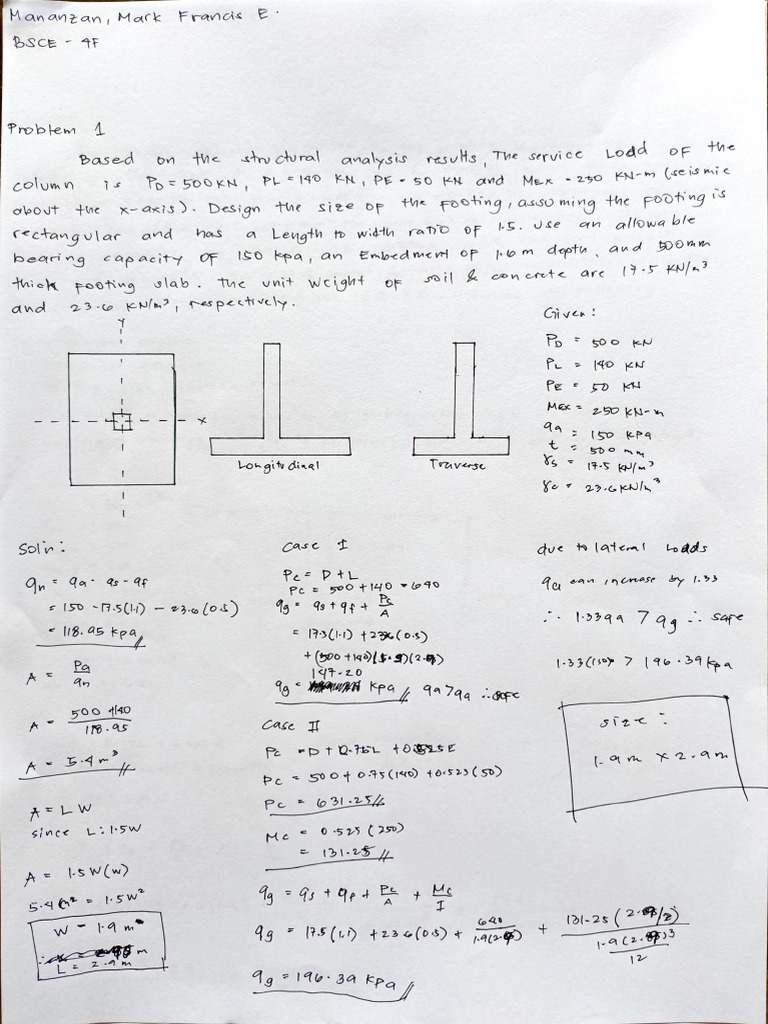 Mananzan, Mark Francis E.
BSCE - 4F
Problem 1
Based on the structural analysis results, The service Load of the
column is PD = 500 KN, PL = 140 KN, PE = 50 KN and MEX = 250 KN-m (seismic
about the x-axis). Design the size of the footing, assuming the footing is
rectangular and has a Length to width ratio of 1.5. use an allowable
bearing capacity of 150 kpa, an Embedment of 1.6 m depth, and 500mm
thick footing slab. The unit weight of soil & concrete are 17.5 KN/m³
and 23.6 KN/m³, respectively.
Given:
PD = 500 KN
PL = 140 KN
PE = 50 KN
MEX = 250 KN-m
qa = 150 KPa
t = 500 mm
γs = 17.5 KN/m³
γc = 23.6 KN/m³
Y
X
Longitudinal
Traverse
Sol'n:
qn = qa - qs - qf
= 150 - 17.5(1.1) - 23.6(0.5)
= 118.95 kpa
A = Pa/qn
A = 500+140/118.95
A = 5.4 m³
A = LW
since L: 1.5W
A = 1.5W(W)
5.4 m² = 1.5W²
W = 1.9 m
L = 2.9 m
Case I
Pc = D + L
Pc = 500 + 140 = 640
qg = qs + qf + Pc/A
= 17.5(1.1) + 23.6(0.5)
+ (500 + 140)
147.20
qg = kpa qa > qg ∴ safe
Case II
Pc = D + 0.75L + 0.525E
Pc = 500 + 0.75(140) + 0.525(50)
Pc = 631.25
Mc = 0.525(250)
= 131.25
qg = qs + qf + Pc/A + Mc/I
qg = 17.5(1.1) + 23.6(0.5) + 640/1.9(2.9) + 131.25(2.9/2)/1.9(2.9)³/12
qg = 196.39 kPa
due to lateral loads
qa can increase by 1.33
∴ 1.33qa > qg ∴ safe
1.33(150) > 196.39 kpa
size:
1.9m x 2.9m